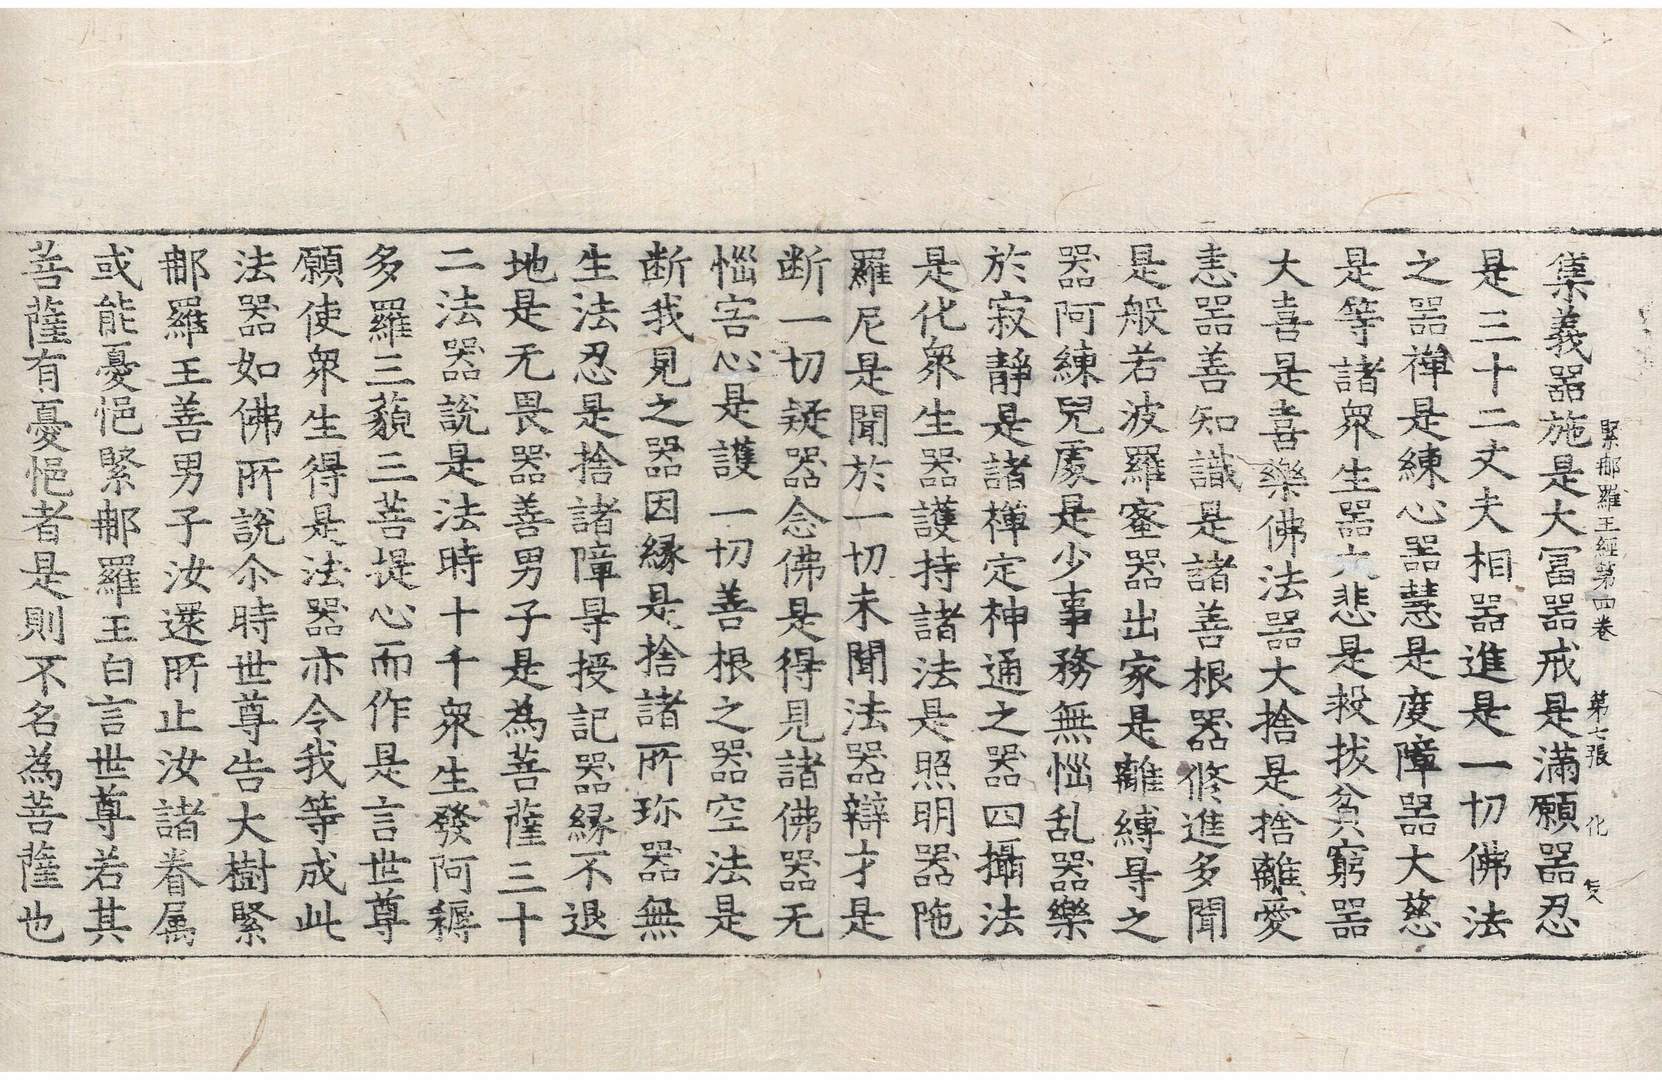 緊那羅王經第四卷 第七張 化
集義器施是大冨器戒是滿願器忍
是三十二丈夫相器進是一切佛法
之器禅是練心器慧是度障器大慈
是等諸衆生器大悲是救拔貧窮器
大喜是喜樂佛法器大捨是捨離愛
恚器善知識是諸善根器修進多聞
是般若波羅蜜器出家是離縛㝵之
器阿練兒處是少事務無惱乱器樂
於寂靜是諸禅定神通之器四攝法
是化衆生器護持諸法是照明器陁
羅尼是聞於一切未聞法器辯才是
断一切疑器念佛是得見諸佛器无
惱害心是護一切善根之器空法是
断我見之器因緣是捨諸所珎器無
生法忍是捨諸障㝵授記器緣不退
地是无畏器善男子是為菩薩三十
二法器說是法時十千衆生發阿耨
多羅三藐三菩提心而作是言世尊
願使衆生得是法器亦令我等成此
法器如佛所說尒時世尊告大樹緊
那羅王善男子汝還所止汝諸眷属
或能憂悒緊那羅王白言世尊若其
菩薩有憂悒者是則不名為菩薩也